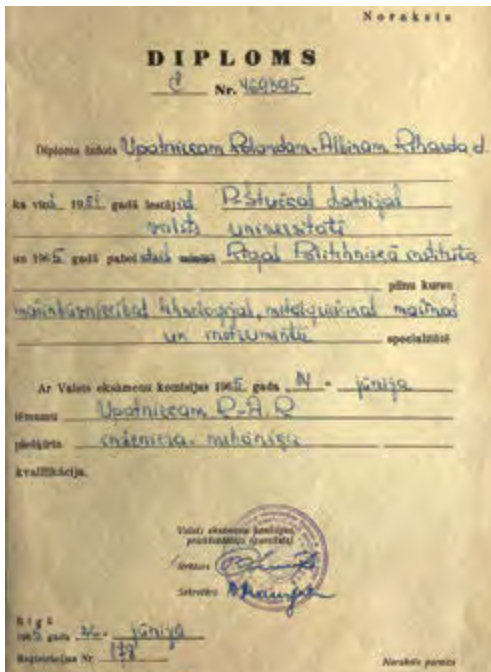 Noraksts
DIPLOMS
Nr. 469395
Diploms izdots Upatniecam Rolandam-Albinam Riharda d.
ka viņš 1951 gadā iestājies P. Stučkas Latvijas
valsts universitātē
un 1965 gadā pabeidzis Rīgas Politehniskā institūta
pilnu kursu
mašīnbūvniecības tehnoloģijas, metālgriešanas mašīnas
un instrumenti specialitātē
Ar Valsts eksāmenu komisijas 1965 gada jūnija
lēmumu Upatniecam R-A. R
piešķirta inženiera-mehāniķa
kvalifikācija.
Valsts eksāmenu komisijas
priekšsēdētājs (paraksts)
Rektors
Sekretārs
Rīgā
1965 gada 26. jūnijā
Reģistrācijas Nr
Noraksts pareizs